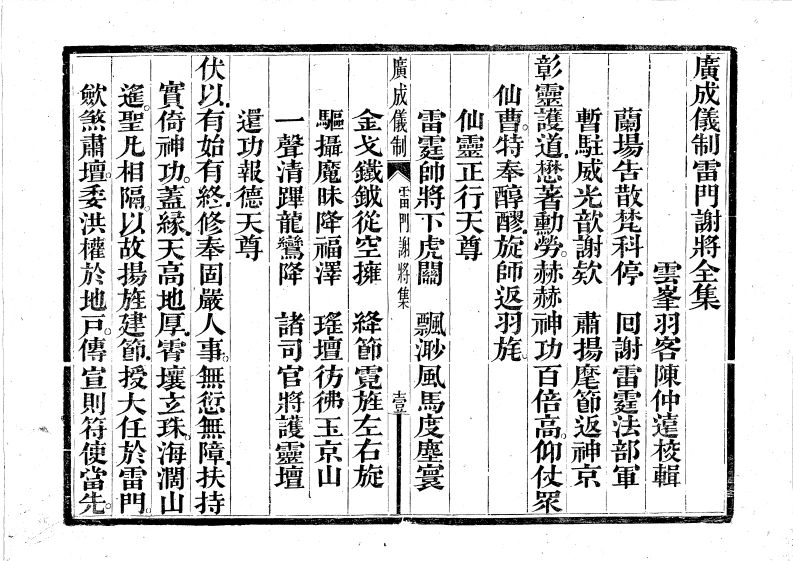 廣成儀制雷門謝將全集
雲峯羽客陳仲遠校輯
蘭場告散梵科停　回謝雷霆法部軍
暫駐威光歆謝欵　肅揚麾節返神京
彰靈護道。懋著勳勞。赫赫神功百倍高。仰仗眾
仙曹。特奉醇醪。旋師返羽旄。
仙靈正行天尊
雷霆帥將下虎關　飄渺風馬度塵寰
廣成儀制　雷門謝將集　壹
金戈鐵鉞從空擁　絳節霓旌左右旋
驅攝魔昧降福澤　瑤壇彷彿玉京山
一聲清蹕龍鸞降　諸司官將護靈壇
還功報德天尊
伏以。有始有終。修奉固嚴人事。無愆無障。扶持
實倚神功。蓋緣。天高地厚。霄壤玄殊。海濶山
遙。聖凡相隔。以故揚旌建節。授大任於雷門。
歛煞肅壇。委洪權於地戸。傳宣則符使當先。